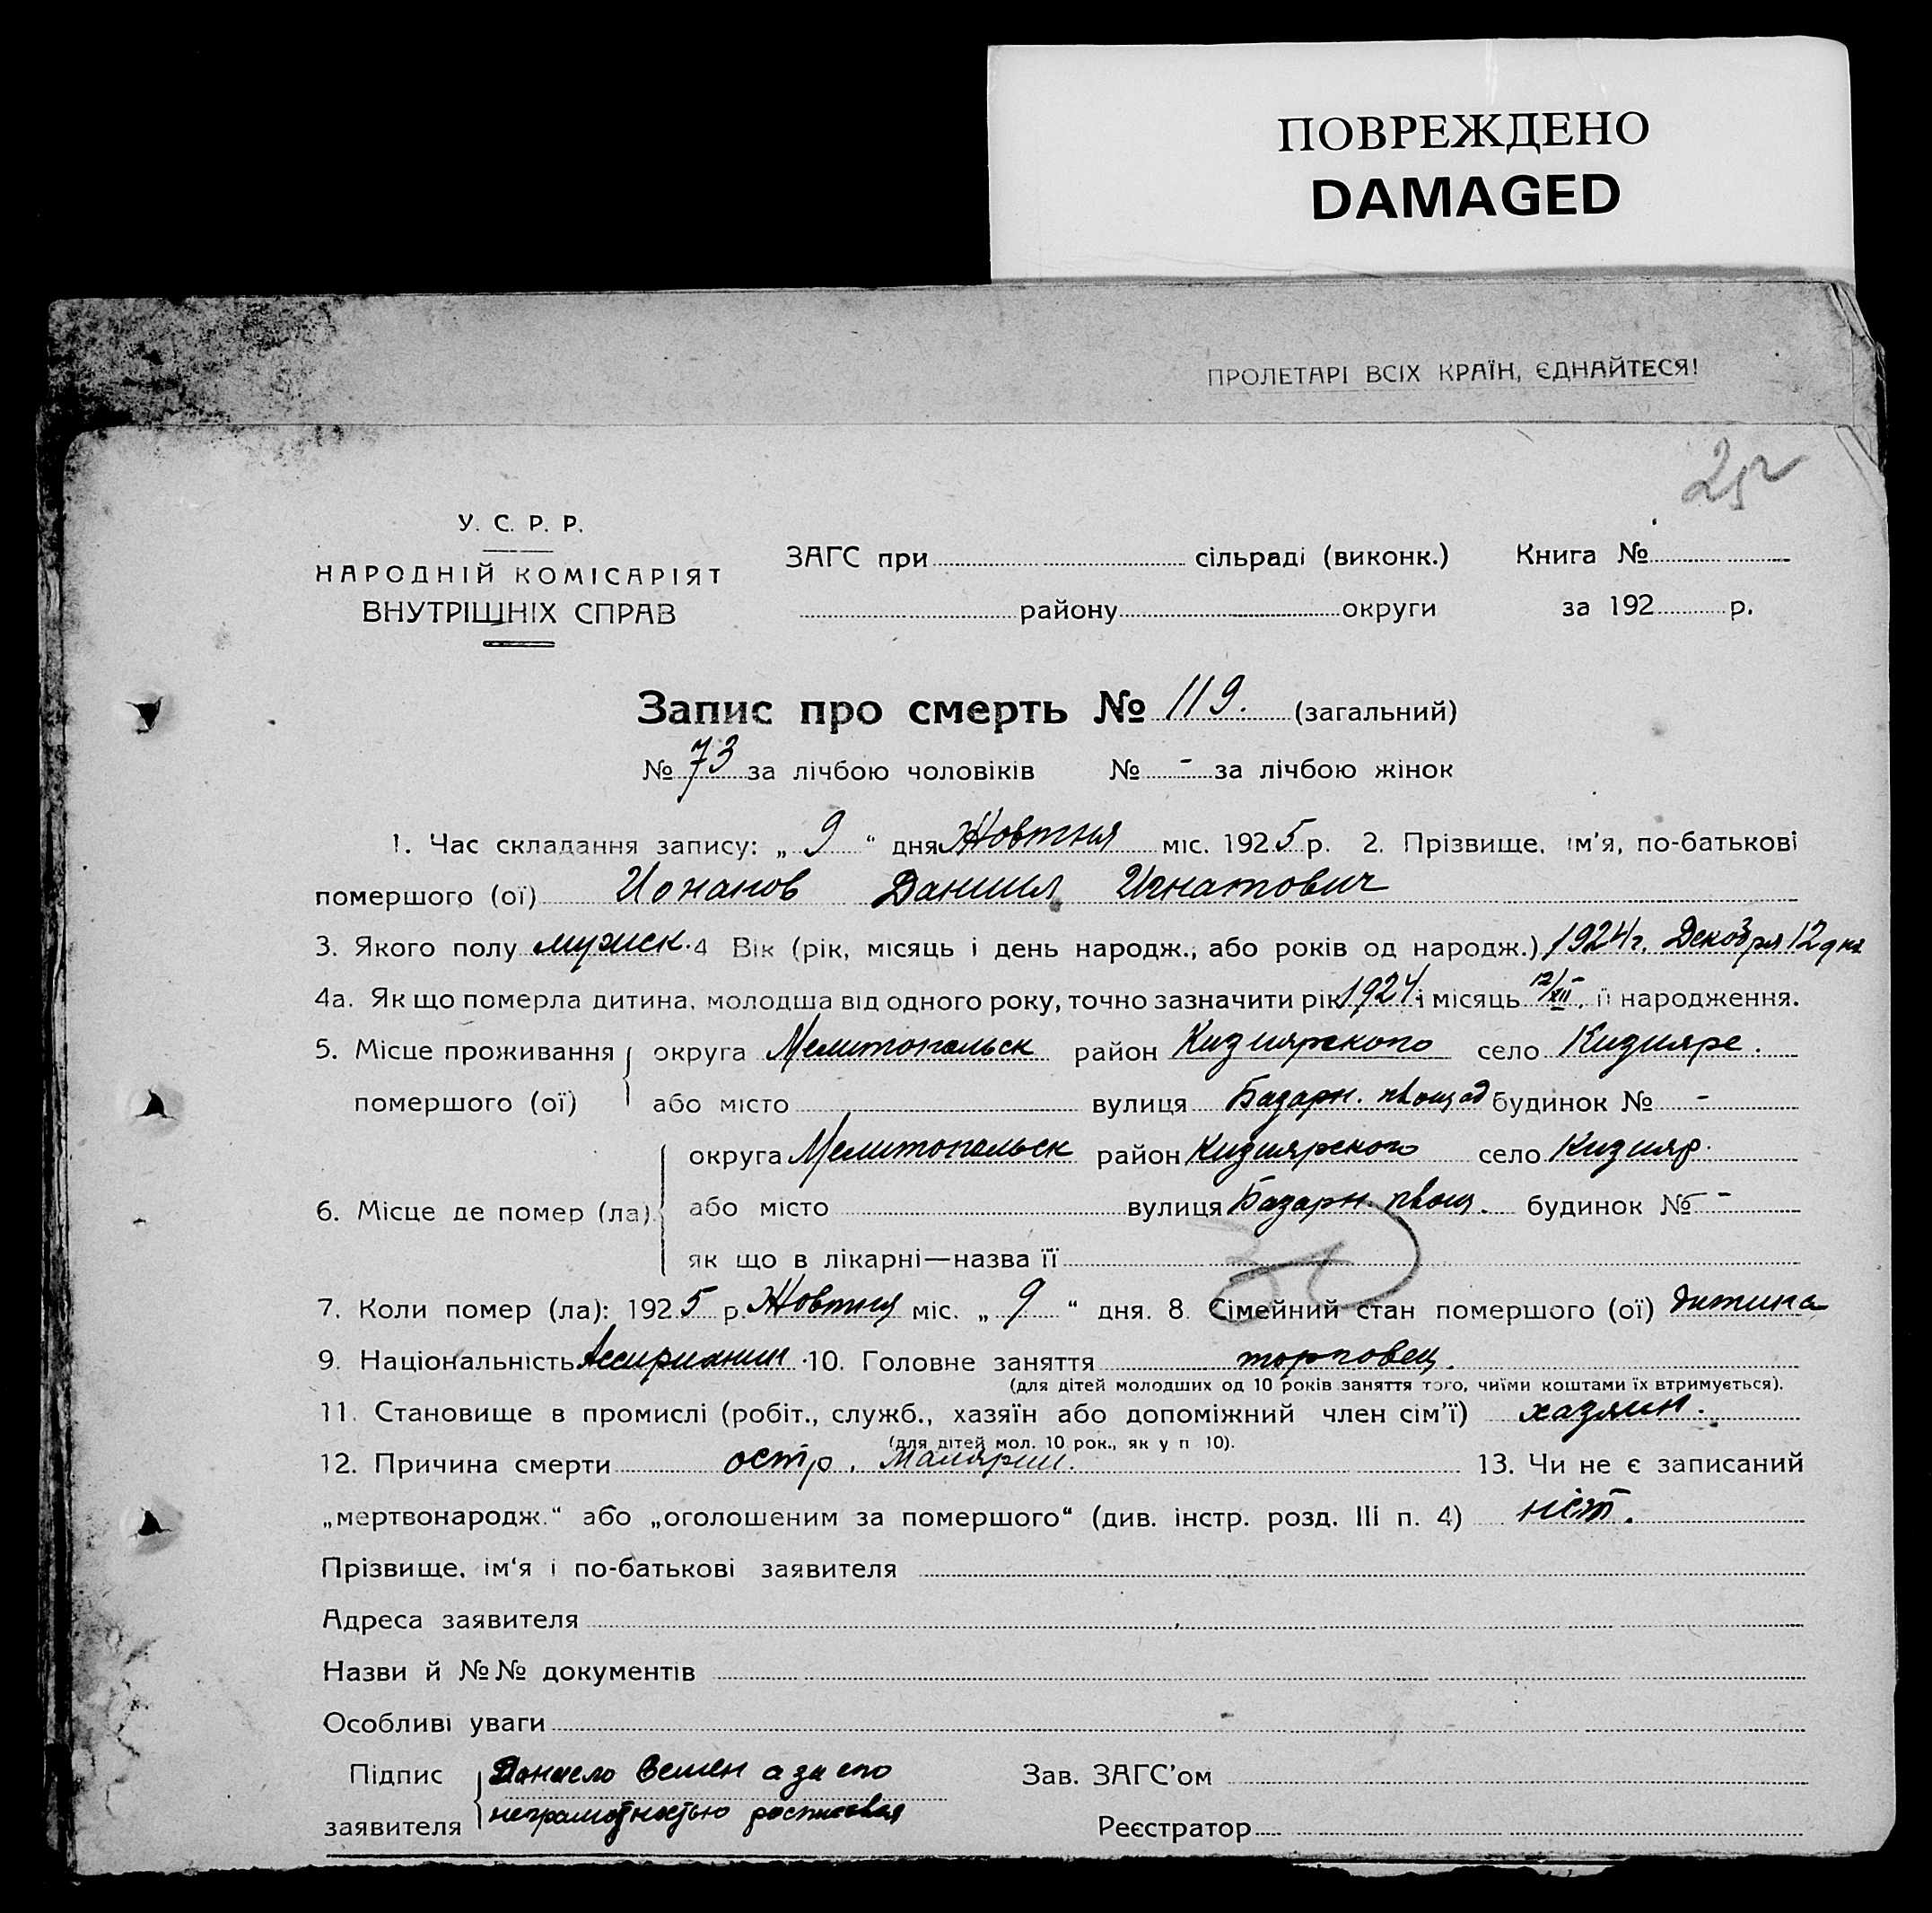 ПОВРЕЖДЕНО
DAMAGED
ПРОЛЕТАРІ ВСІХ КРАЇН, ЄДНАЙТЕСЯ!
У. С. Р. Р.
НАРОДНІЙ КОМІСАРІЯТ
ВНУТРІШНІХ СПРАВ
ЗАГС при сільраді (виконк.) Книга №
району округи за 192 р.
Запис про смерть № 119. (загальний)
№ 73 за лічбою чоловіків № - за лічбою жінок
1. Час складання запису: „ 9 “ дня Жовтня міс. 1925 р. 2. Прізвище, ім'я, по-батькові
помершого (ої) Ионанов Даниил Игнатович
3. Якого полу мужеск. 4 Вік (рік, місяць і день народж., або років од народж.) 1924 г. Декабря 12 дня
4а. Як що померла дитина, молодша від одного року, точно зазначити рік 1924 і місяць 12/XII, її народження.
5. Місце проживання округа Мелитопольск район Кизиярского село Кизияре.
помершого (ої) або місто вулиця Базарн. площад будинок № -
округа Мелитопольск район Кизиярского село Кизияр.
6. Місце де помер (ла) або місто вулиця Базарн. площ. будинок № -
як що в лікарні—назва її
7. Коли помер (ла): 1925 р. Жовтня міс. „ 9 “ дня. 8. Сімейний стан помершого (ої) дитина
9. Національність Ассириянин. 10. Головне заняття торговец.
(для дітей молодших од 10 років заняття того, чиїми коштами їх втримується).
11. Становище в промислі (робіт., служб., хазяїн або допоміжний член сім'ї) хазяин.
(для дітей мол. 10 рок., як у п 10).
12. Причина смерти остр. Малярии. 13. Чи не є записаний
„мертвонародж.“ або „оголошеним за помершого“ (див. інстр. розд. III п. 4) ніт.
Прізвище, ім'я і по-батькові заявителя
Адреса заявителя
Назви й №№ документів
Особливі уваги
Підпис а за его Зав. ЗАГС'ом
заявителя неграмотностью Реєстратор